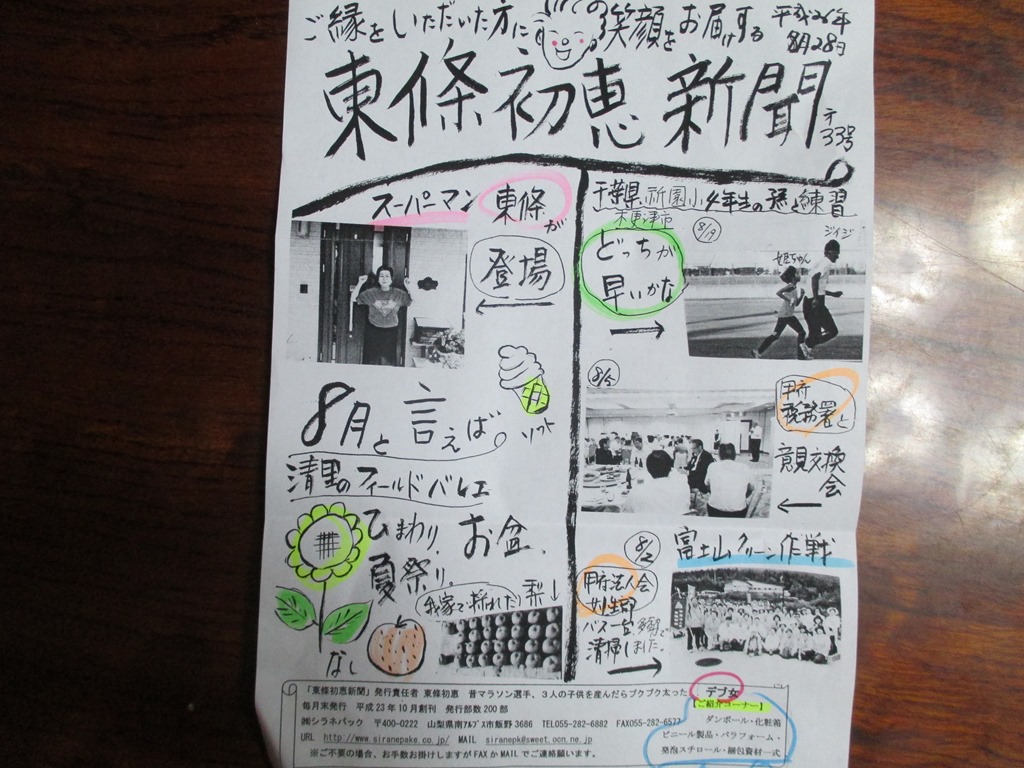 ご縁をいただいた方に
の笑顔をお届けする
平成26年
8月28日
東條初恵新聞
33号
スーパーマン 東條
が
登場
8月と言えば。
ソフト
清里のフィールドバレエ
ひまわり、お盆、
夏祭り。
我家で採れた梨↓
なし
千葉県祇園小4年生の孫と練習
木更津市
8/19
どっちが
早いかな
ジイジ
8/5
甲府
税務署と
意見交換
会
8/2
富士山クリーン作戦
甲府法人会
バス一台
清掃しました。
「東條初恵新聞」発行責任者 東條初恵 昔マラソン選手、3人の子供を産んだらブクブク太った デブ女
毎月末発行 平成23年10月創刊 発行部数200部
㈱シラネパック 〒400-0222 山梨県南アルプス市飯野3686 TEL055-282-6882 FAX055-282-6577
URL http://www.siranepake.co.jp/ MAIL siranepk@sweet.ocn.ne.jp
※ご不要の場合、お手数お掛けしますがFAXかMAILでご連絡願います。
【ご紹介コーナー】
ダンボール・化粧箱
ビニール製品・パラフォーム・
発泡スチロール・梱包資材一式